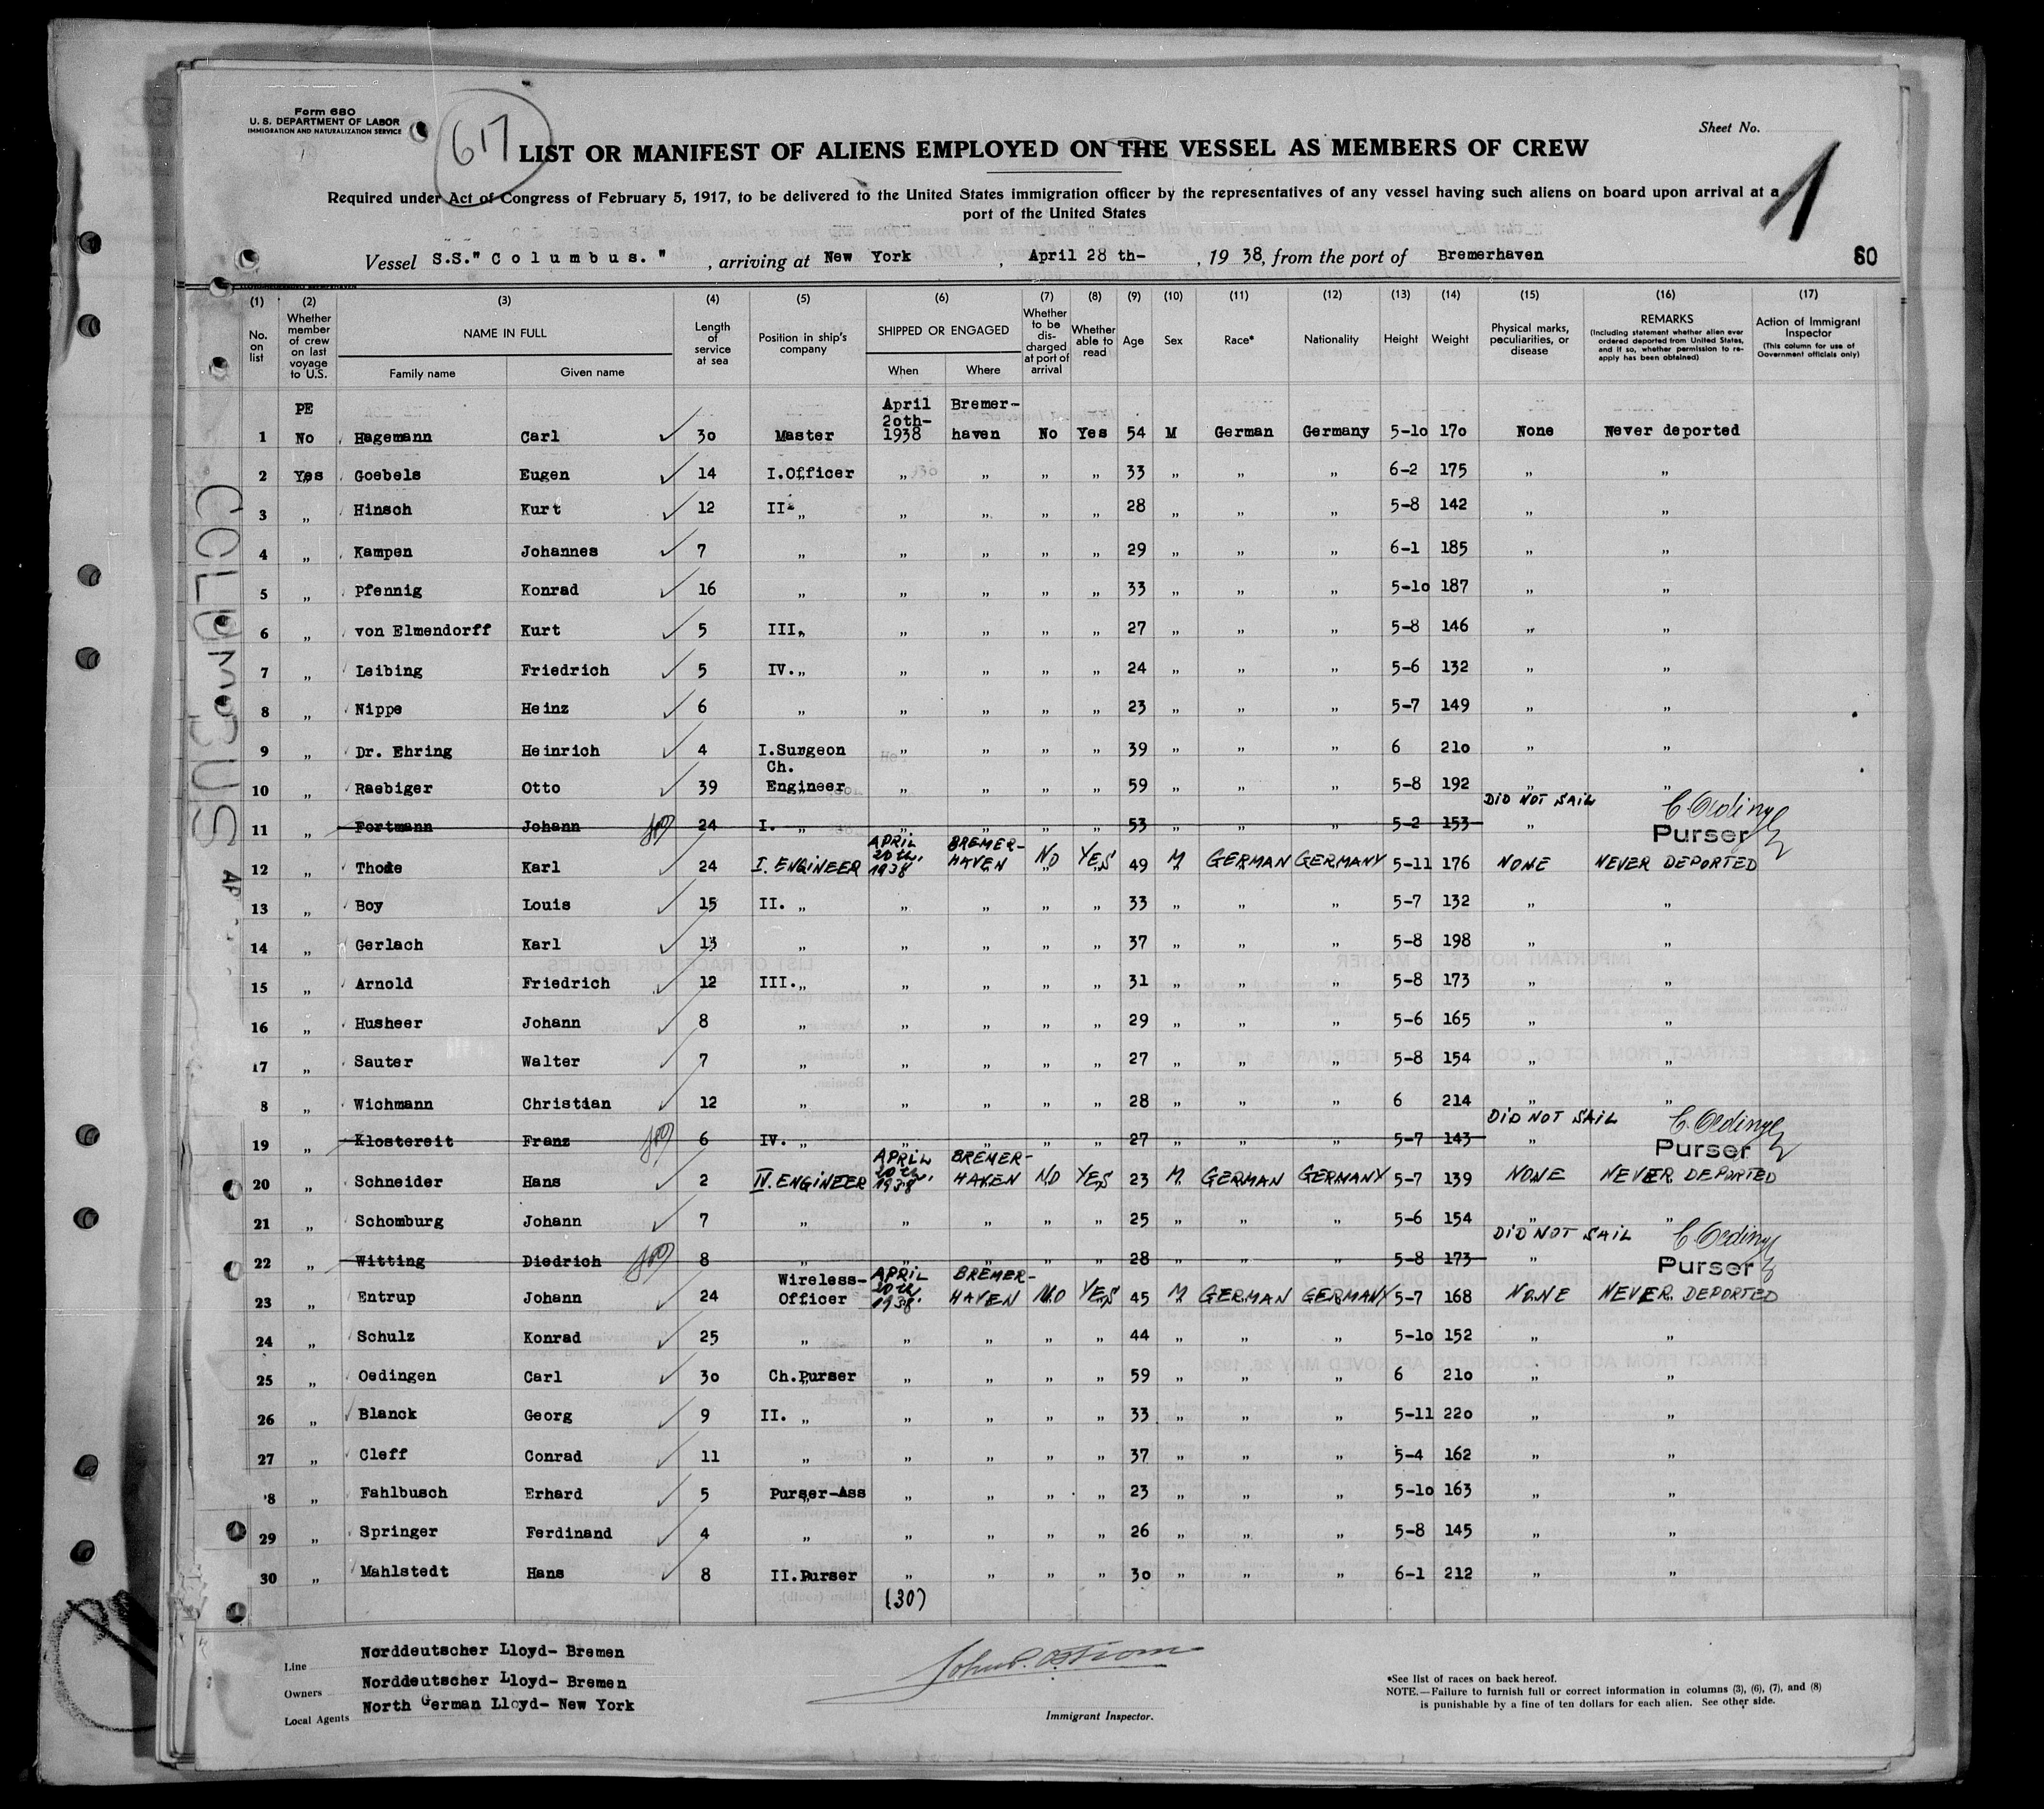 Form 680
U. S. DEPARTMENT OF LABOR
IMMIGRATION AND NATURALIZATION SERVICE
617
Sheet No.
1
LIST OR MANIFEST OF ALIENS EMPLOYED ON THE VESSEL AS MEMBERS OF CREW
Required under Act of Congress of February 5, 1917, to be delivered to the United States immigration officer by the representatives of any vessel having such aliens on board upon arrival at a
port of the United States
Vessel S.S." C o l u m b u s. " , arriving at New York , April 28 th- , 19 38, from the port of Bremerhaven
80
(1) (2) (3) (4) (5) (6) (7) (8) (9) (10) (11) (12) (13) (14) (15) (16) (17)
No. on list
Whether member of crew on last voyage to U.S.
NAME IN FULL
Family name Given name
Length of service at sea
Position in ship's company
SHIPPED OR ENGAGED
When Where
Whether to be discharged at port of arrival
Whether able to read
Age Sex Race* Nationality Height Weight
Physical marks, peculiarities, or disease
REMARKS
(Including statement whether alien ever ordered deported from United States, and if so, whether permission to re-apply has been obtained)
Action of Immigrant Inspector
(This column for use of Government officials only)
PE April Bremer-
2oth-
1 No Hagemann Carl 3o Master 1938 haven No Yes 54 M German Germany 5-1o 17o None Never deported
2 Yes Goebels Eugen 14 I.Officer „ „ „ „ 33 „ „ „ 6-2 175 „ „
3 „ Hinsch Kurt 12 II „ „ „ „ „ 28 „ „ „ 5-8 142 „ „
4 „ Kampen Johannes 7 „ „ „ „ „ 29 „ „ „ 6-1 185 „ „
5 „ Pfennig Konrad 16 „ „ „ „ „ 33 „ „ „ 5-1o 187 „ „
6 „ von Elmendorff Kurt 5 III„ „ „ „ „ 27 „ „ „ 5-8 146 „ „
7 „ Leibing Friedrich 5 IV.„ „ „ „ „ 24 „ „ „ 5-6 132 „ „
8 „ Nippe Heinz 6 „ „ „ „ „ 23 „ „ „ 5-7 149 „ „
9 „ Dr. Ehring Heinrich 4 I.Surgeon „ „ „ „ 39 „ „ „ 6 21o „ „
Ch.
10 „ Raebiger Otto 39 Engineer „ „ „ „ 59 „ „ „ 5-8 192 „ „
DID NOT SAIL C. Oedingen
11 „ Fortmann Johann 24 I. „ „ „ „ „ 53 „ „ „ 5-2 153 „ Purser
APRIL BREMER-
20 th.
12 „ Thode Karl 24 I. ENGINEER 1938 HAVEN NO YES 49 M GERMAN GERMANY 5-11 176 NONE NEVER DEPORTED
13 „ Boy Louis 15 II. „ „ „ „ „ 33 „ „ „ 5-7 132 „ „
14 „ Gerlach Karl 13 „ „ „ „ „ 37 „ „ „ 5-8 198 „ „
15 „ Arnold Friedrich 12 III.„ „ „ „ „ 31 „ „ „ 5-8 173 „ „
16 „ Husheer Johann 8 „ „ „ „ „ 29 „ „ „ 5-6 165 „ „
17 „ Sauter Walter 7 „ „ „ „ „ 27 „ „ „ 5-8 154 „ „
8 „ Wichmann Christian 12 „ „ „ „ „ 28 „ „ „ 6 214 „ „
DID NOT SAIL C. Oedingen
19 „ Klostereit Franz 6 IV. „ „ „ „ „ 27 „ „ „ 5-7 143 „ Purser
APRIL BREMER-
20 th.
20 „ Schneider Hans 2 IV. ENGINEER 1938 HAVEN NO YES 23 M. GERMAN GERMANY 5-7 139 NONE NEVER DEPORTED
21 „ Schomburg Johann 7 „ „ „ „ „ 25 „ „ „ 5-6 154 „ „
DID NOT SAIL C. Oedingen
22 „ Witting Diedrich 8 „ „ „ „ „ 28 „ „ „ 5-8 173 „ Purser
Wireless- APRIL BREMER-
20 th
23 „ Entrup Johann 24 Officer 1938. HAVEN NO YES 45 M. GERMAN GERMANY 5-7 168 NONE NEVER DEPORTED
24 „ Schulz Konrad 25 „ „ „ „ „ 44 „ „ „ 5-1o 152 „ „
25 „ Oedingen Carl 3o Ch.Purser „ „ „ „ 59 „ „ „ 6 21o „ „
26 „ Blanck Georg 9 II. „ „ „ „ „ 33 „ „ „ 5-11 22o „ „
27 „ Cleff Conrad 11 „ „ „ „ „ 37 „ „ „ 5-4 162 „ „
8 „ Fahlbusch Erhard 5 Purser-Ass „ „ „ „ 23 „ „ „ 5-1o 163 „ „
29 „ Springer Ferdinand 4 „ „ „ „ „ 26 „ „ „ 5-8 145 „ „
30 „ Mahlstedt Hans 8 II.Purser „ „ „ „ 3o „ „ „ 6-1 212 „ „
(30)
COLUMBUS AP
Line Norddeutscher Lloyd- Bremen
Owners Norddeutscher Lloyd- Bremen
Local Agents North German Lloyd- New York
Immigrant Inspector.
*See list of races on back hereof.
NOTE.—Failure to furnish full or correct information in columns (3), (6), (7), and (8)
is punishable by a fine of ten dollars for each alien. See other side.